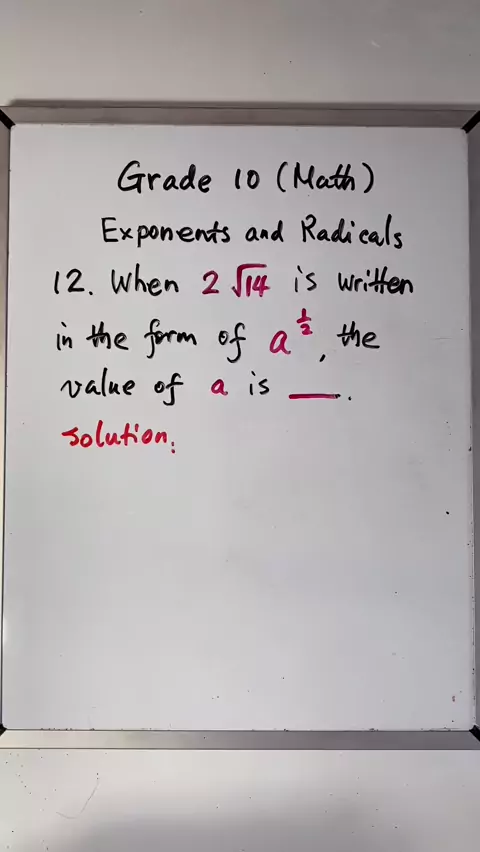 Grade 10 (Math)
Exponents and Radicals
12. When 2 √14 is written
in the form of a^½, the
value of a is ___.
Solution: